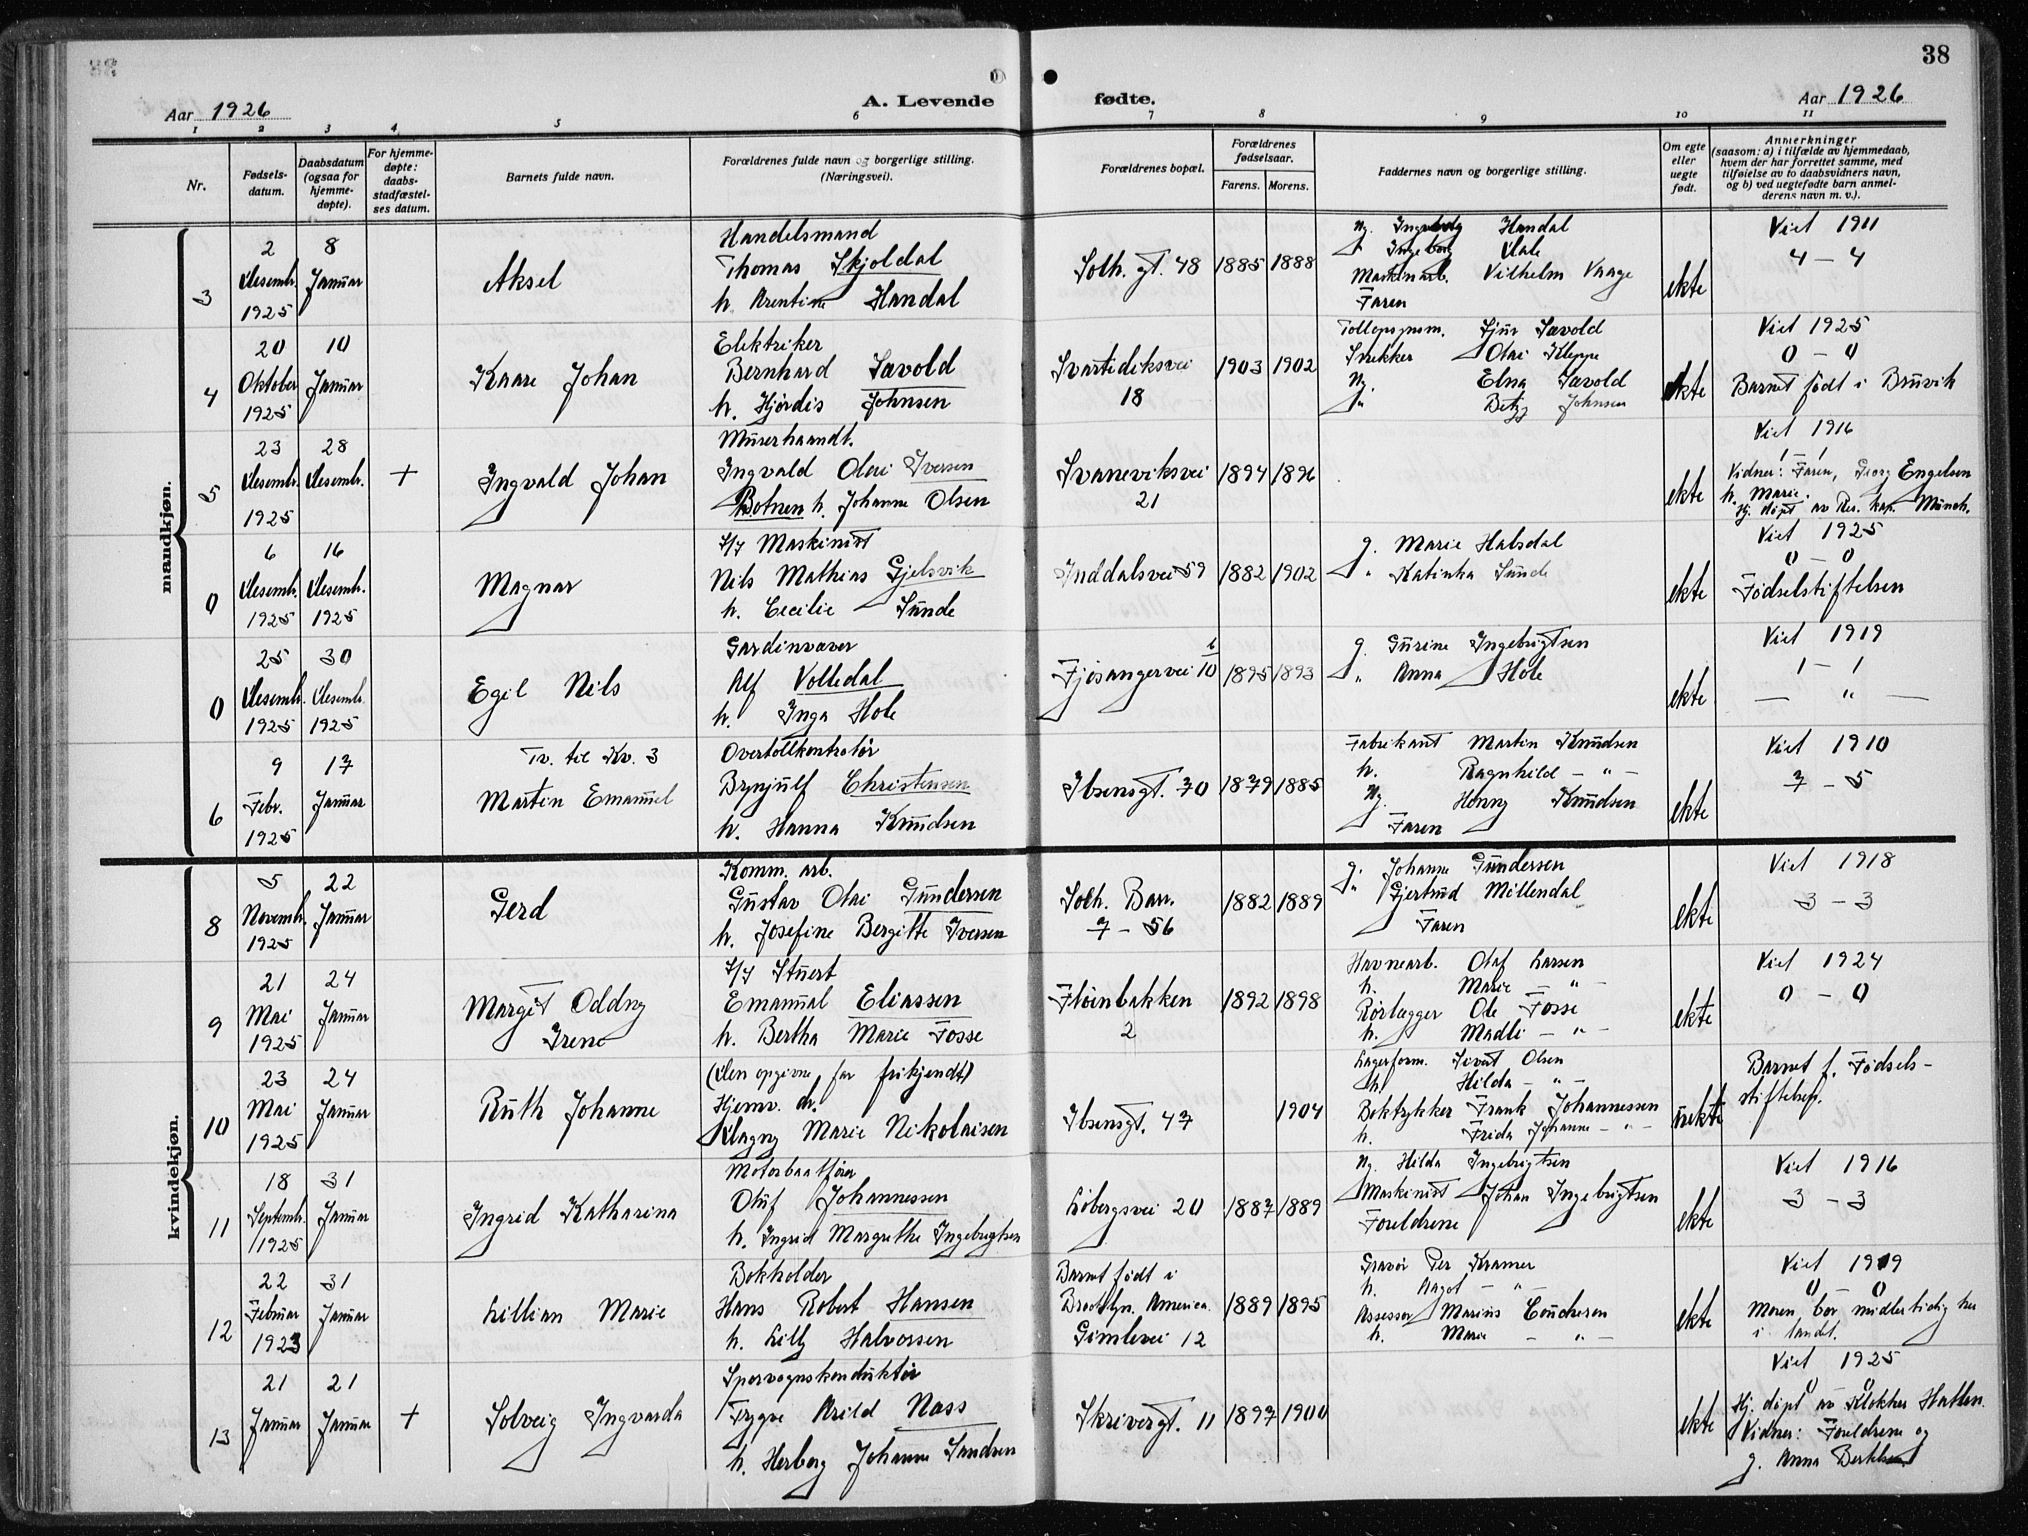 38
Aar 1926
A. Levende fødte.
Aar 1926
1 2 3 4. 5 6 7 8 9 10 11
Nr.
Fødsels-
datum.
Daabsdatum
(ogsaa for
hjemme-
døpte).
For hjemme-
døpte:
daabs-
stadfæstel-
ses datum.
Barnets fulde navn.
Forældrenes fulde navn og borgerlige stilling.
(Næringsvei).
Forældrenes bopæl.
Forældrenes
fødselsaar.
Farens. Morens.
Faddernes navn og borgerlige stilling.
Om egte
eller
uegte
født.
Anmerkninger
(saasom: a) i tilfælde av hjemmedaab,
hvem der har forrettet samme, med
tilføielse av to daabsvidners navn,
og b) ved uegtefødte barn anmel-
derens navn m. v.).
mandkjøn.
3
2
Desembr.
1925
8
Januar
Aksel
Handelsmand
Thomas Skjoldal
h. Arentine Handal
Solh. gt. 48
1885 1888
Ug. Ingeborg Handal
" Ingeborg Dale
Maskinarb. Vilhelm Vaage
Faren
ekte
Viet 1911
4 – 4
4
20
Oktober
1925
10
Januar
Kaare Johan
Elektriker
Bernhard Sævold
h. Hjørdis Johnsen
Svartediksvei
18
1903 1902
Tollopsynsm. Sjur Sævold
Snekker Olai Kleppe
Ug. Elna Sævold
" Betzy Johnsen
ekte
Viet 1925
0 – 0
Barnet født i Bruvik
5
23
Desembr.
1925
28
Desembr.
+
Ingvald Johan
Murerhaandt.
Ingvald Olai Iversen
Botnen h. Johanne Olsen
Svaneviksvei
21
1894 1896
ekte
Viet 1916
1 – 1
Vidner: Faren, Georg Engelsen
h. Marie.
Hj. døpt av Res. kap. Münch.
0
6
Desembr.
1925
16
Desembr.
1925
Magnar
D/S Maskinist
Nils Mathias Gjelsvik
h. Cecilie Sunde
Inddalsvei 59
1882 1902
g. Marie Halsdal
" Katinka Sunde
ekte
Viet 1925
0 – 0
Fødselstiftelsen
0
25
Desembr.
1925
30
Desembr.
1925
Egil Nils
Gardinvæver
Alf Volledal
h. Inga Hole
Fjøsangervei 10
1895 1893
g. Gurine Ingebrigtsen
" Anna Hole
ekte
Viet 1919
1 – 1
— " —
6
9
Febr.
1925
17
Januar
Tv. til Kv. 3
Martin Emanuel
Overtollkontrolør
Brynjulf Christensen
h. Hanna Knudsen
Ibsensgt. 70
1879 1885
Fabrikant Martin Knudsen
h. Ragnhild – " –
Ug. Henny Knudsen
Faren
ekte
Viet 1910
7 – 5
kvindekjøn.
8
5
Novembr.
1925
22
Januar
Gerd
Komm. arb.
Gustav Olai Gundersen
h. Josefine Bergitte Iversen
Solh. Barr.
7 – 56
1882 1889
g. Johanne Gundersen
" Gjertrud Møllendal
Faren
ekte
Viet 1918
3 – 3
9
21
Mai
1925
24
Januar
Margit Oddny
Irene
D/S Stuert
Emanual Eliassen
h. Bertha Marie Fosse
Fløinbakken
2
1892 1898
Havnearb. Olaf Larsen
h. Marie – " –
Rørlægger Ole Fosse
h. Madli – " –
ekte
Viet 1924
0 – 0
10
23
Mai
1925
24
Januar
Ruth Johanne
(Den opgivne far frikjendt)
Hjemv. dt.
Dagny Marie Nikolaisen
Ibsensgt. 47
1904
Lagerform. Sivert Olsen
h. Hilda – " –
Boktrykker Frank Johannessen
h. Frida Johanne – " –
uekte
Barnet f. Fødsels-
stiftelsen.
11
18
Septembr.
1925
31
Januar
Ingrid Katharina
Motorbaatfører
Oluf Johannessen
h. Ingrid Margrethe Ingebrigtsen
Løbergsvei 20
1887 1889
Ug. Hilda Ingebrigtsen
Maskinist Johan Ingebrigtsen
Foreldrene
ekte
Viet 1916
3 – 3
12
22
Februar
1923
31
Januar
Lillian Marie
Bokholder
Hans Robert Hansen
h. Lilly Halvorsen
Barnet født i
Brooklyn. America.
Gimlevei 12
1889 1895
Gravør Per Kramer
h. Aagot – " –
Assessor Marius Coucheron
h. Marie – " –
ekte
Viet 1919
0 0
Moren bor midlertidig her
i landet.
13
21
Januar
21
Januar
+
Solveig Ingvarda
Sporvognskonduktør
Trygve Arild Næss
h. Herborg Johanne Sandsen
Skrivergt. 11
1897 1900
ekte
Viet 1925
0 0
Hj. døpt av Klokker Hatlen.
Vidner: Foreldrene og
g. Anna Bertelsen